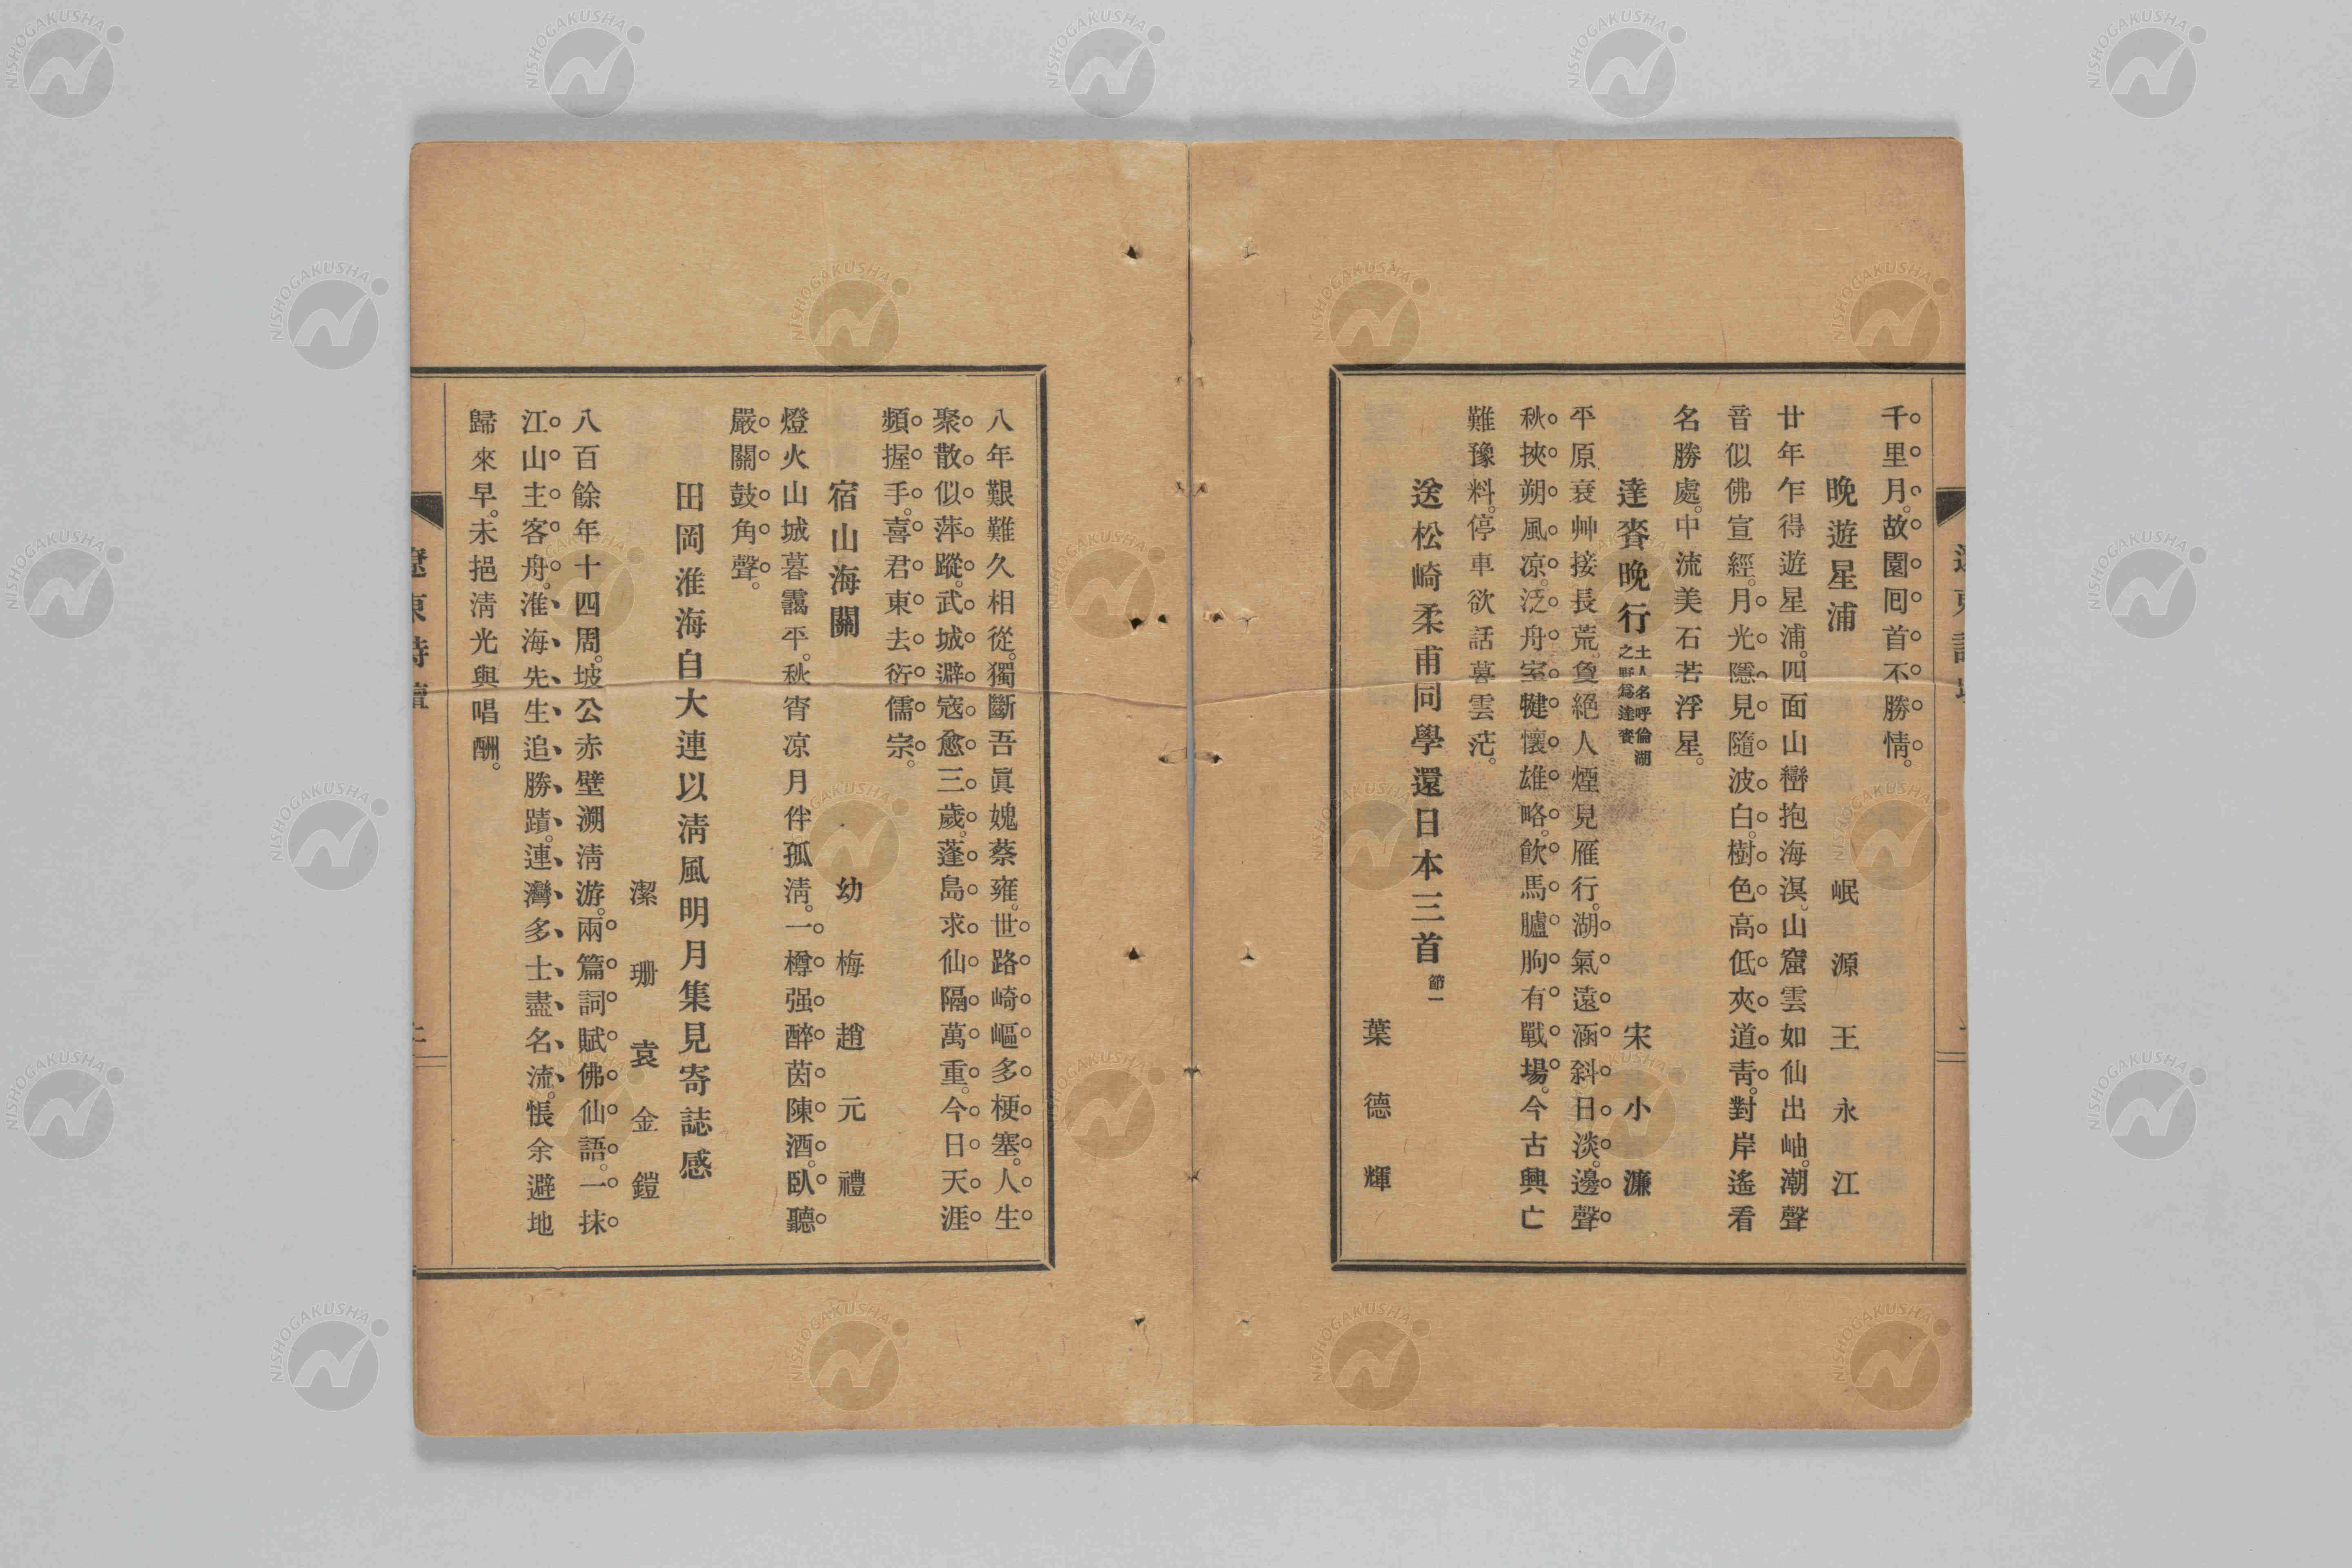 千里月。故園囘首不勝情。
晩遊星浦
岷源王永江
廿年乍得遊星浦。四面山巒抱海溟。山窟雲如仙出岫。潮聲
音似佛宣經。月光隱見隨波白。樹色高低夾道靑。對岸遙看
名勝處。中流美石若浮星。
達賚晩行
土人名呼倫湖
之野爲達賚
宋小濂
平原衰艸接長荒。敻絕人煙見雁行。湖氣遠涵斜日淡。邊聲
秋挾朔風凉。泛舟室韃懷雄略。飮馬臚朐有戰場。今古興亡
難豫料。停車欲話暮雲茫。
送松崎柔甫同學還日本三首
節一
葉德輝
八年艱難久相從。獨斷吾眞媿蔡雍。世路崎嶇多梗塞。人生
聚散似萍蹤。武城避寇愈三歲。蓬島求仙隔萬重。今日天涯
頻握手。喜君東去衍儒宗。
宿山海關
幼梅趙元禮
燈火山城暮靄平。秋宵凉月伴孤淸。一樽强醉茵陳酒。臥聽
嚴關鼓角聲。
田岡淮海自大連以淸風明月集見寄誌感
潔珊袁金鎧
八百餘年十四周。坡公赤壁溯淸游。兩篇詞賦佛仙語。一抹
江山主客舟。淮海先生追勝蹟。連灣多士盡名流。悵余避地
歸來早。未挹淸光與唱酬。
遼東詩壇
NISHOGAKUSHA